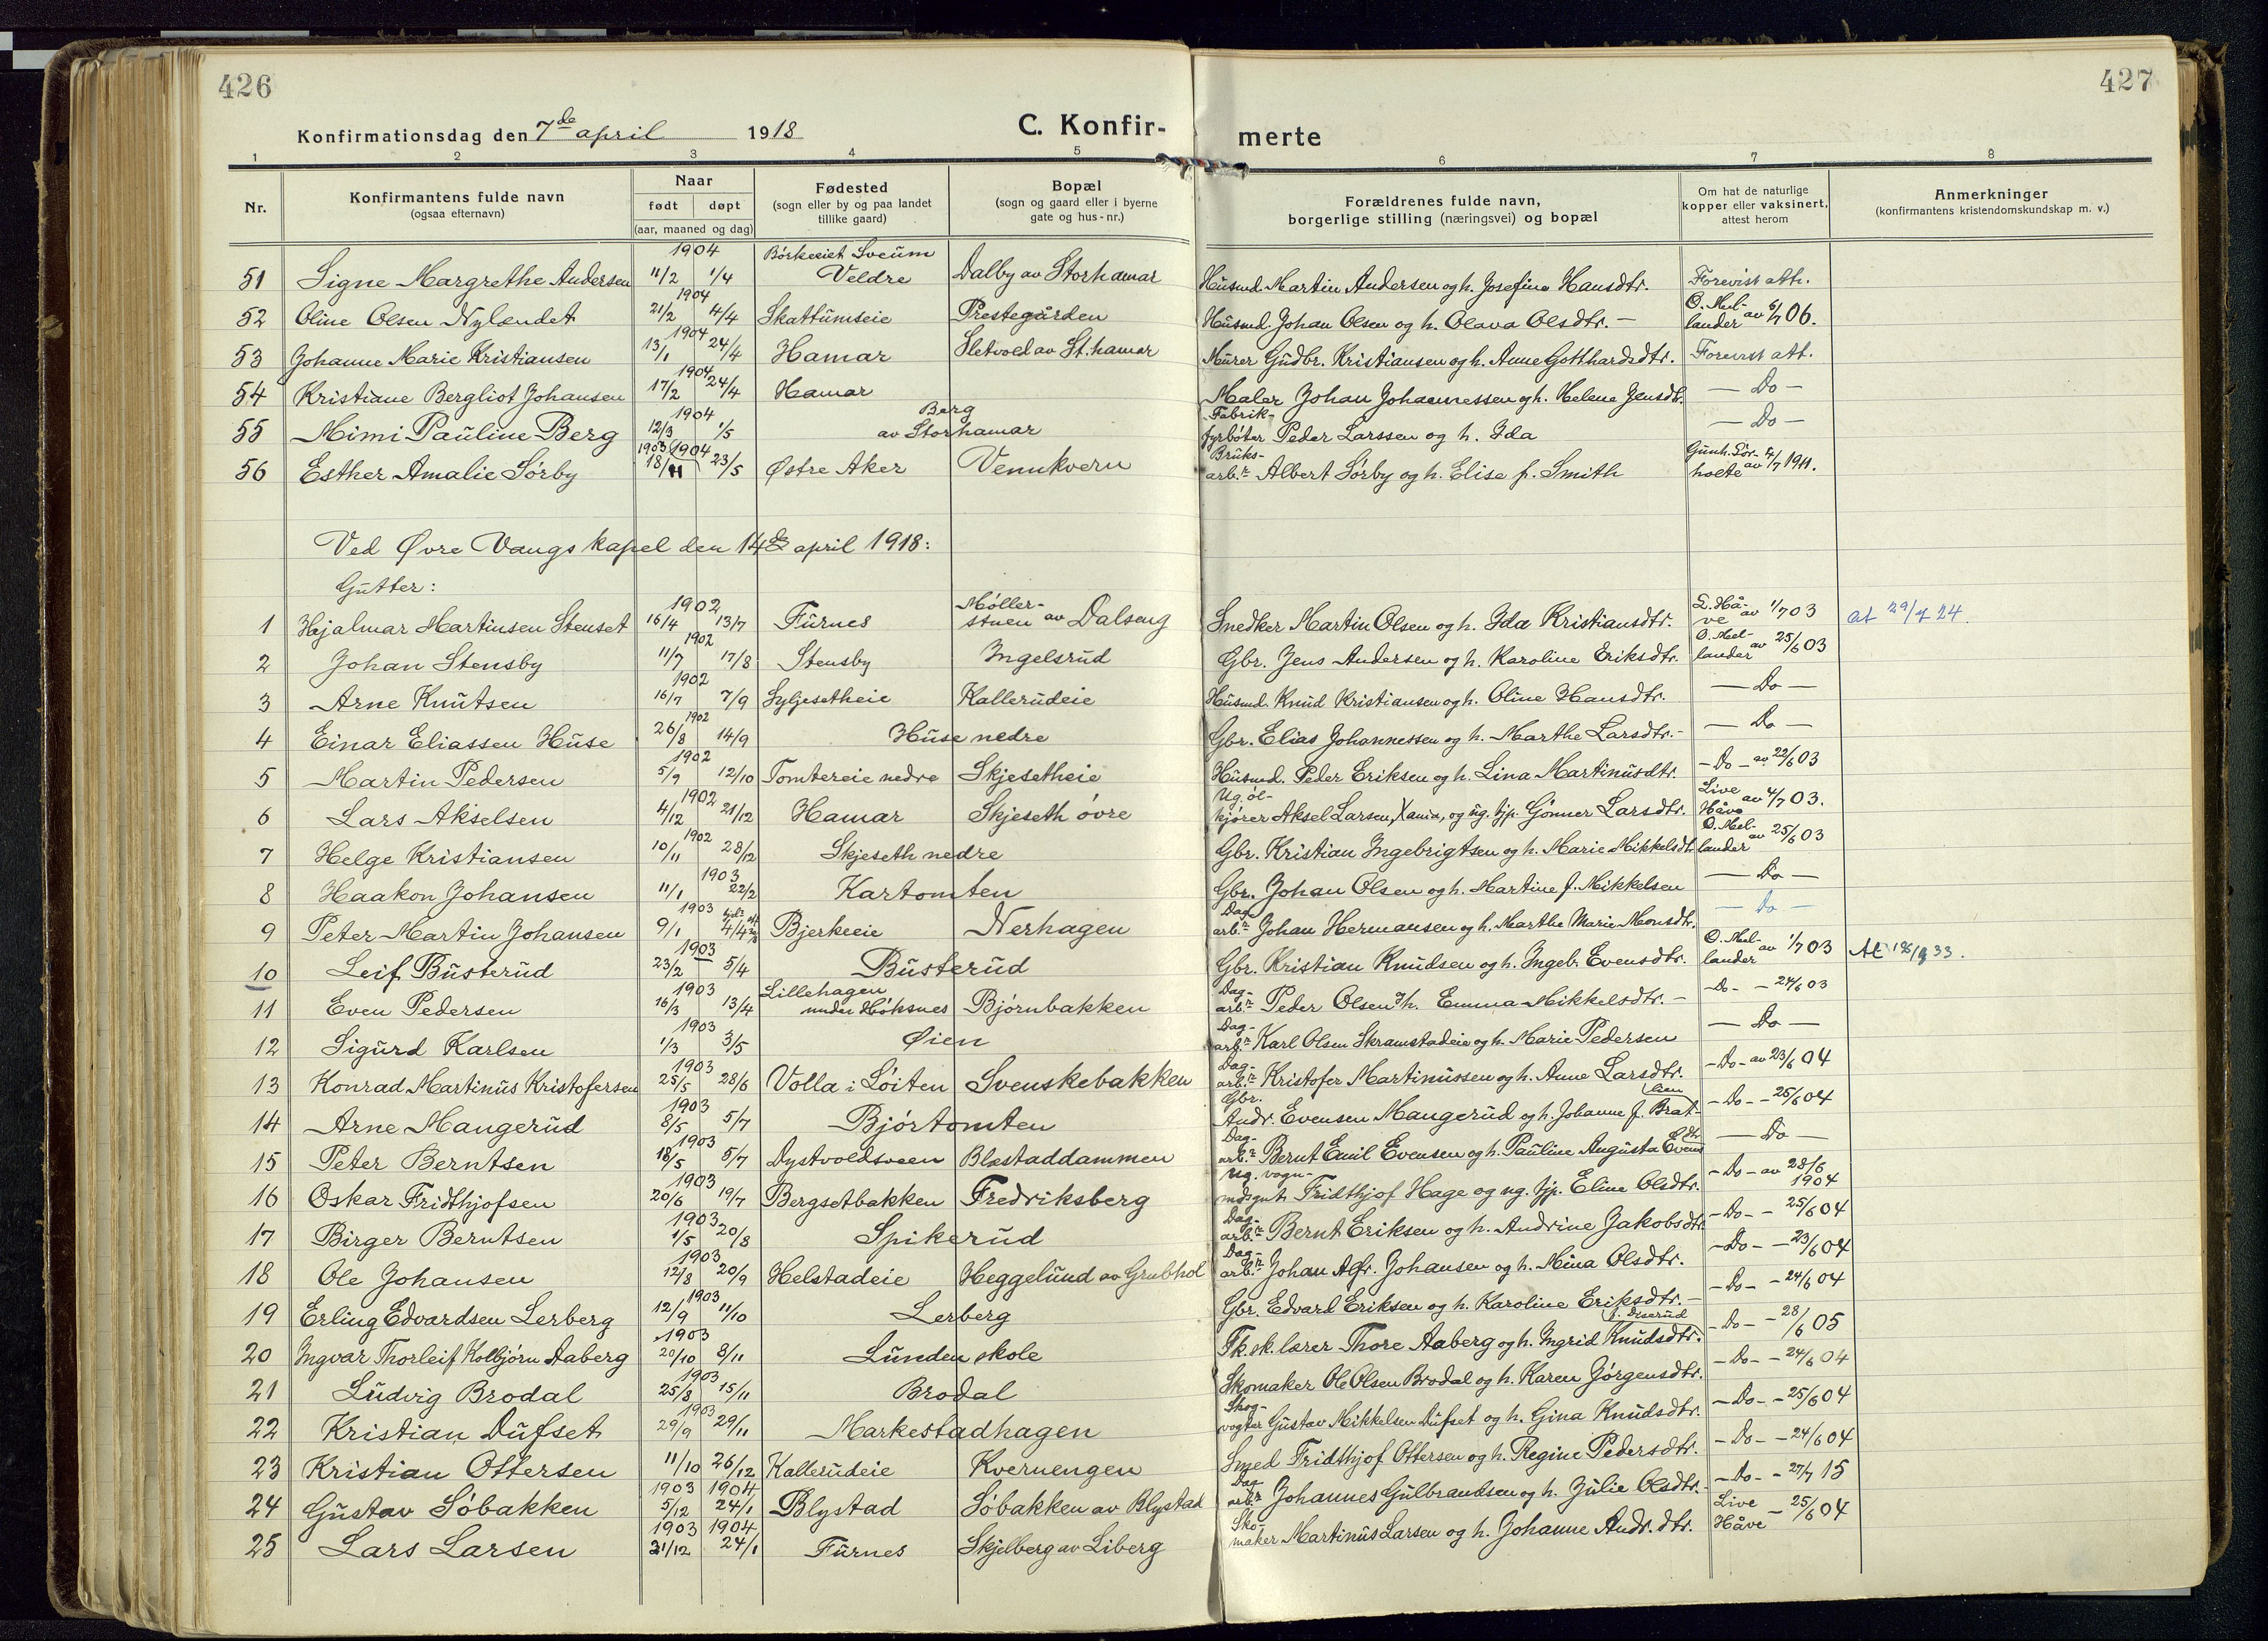 426
427
Konfirmationsdag den 7de april 1918
C. Konfir-
merte
1 2 3 4 5 6 7 8
Nr.
Konfirmantens fulde navn
(ogsaa efternavn)
Naar
født døpt
(aar, maaned og dag)
Fødested
(sogn eller by og paa landet
tillike gaard)
Bopæl
(sogn og gaard eller i byerne
gate og hus-nr.)
Forældrenes fulde navn,
borgerlige stilling (næringsvei) og bopæl
Om hat de naturlige
kopper eller vaksinert,
attest herom
Anmerkninger
(konfirmantens kristendomskundskap m. v.)
51 Signe Margrethe Andersen 1904 11/2 1/4 Sveum Veldre Dalby av Storhamar Husmd. Martin Andersen og h. Josefine Hansdtr. Forevist att.
52 Oline Olsen Nylændet 1904 21/2 4/4 Skattumseie Prestegården Husmd. Johan Olsen og h. Olava Olsdtr. — O. Mellander av 6/7 06.
53 Johanne Marie Kristiansen 1904 13/1 24/4 Hamar Sletvold av St.hamar Murer Gudbr. Kristiansen og h. Anne Gotthardsdtr. Forevist att.
54 Kristiane Bergliot Johansen 1904 17/2 24/4 Hamar Maler Johan Johannessen og h. Helene Jensdtr. — Do —
55 Mimi Pauline Berg 1904 12/3 1/5 Berg av Storhamar Fabrik-fyrbøter Peder Larssen og h. Ida — Do —
56 Esther Amalie Sørby 1903 1904 18/11 23/5 Østre Aker Vennkvern Bruks-arb.r Albert Sørby og h. Elise f. Smith Gunh. Sør-holte av 4/7 1911.
Ved Øvre Vangs kapel den 14de april 1918:
Gutter:
1 Hjalmar Martinsen Stenset 1902 16/4 13/7 Furnes Møller-stuen av Dalseng Snedker Martin Olsen og h. Ida Kristiansdtr. L. Hå-ve av 1/7 03 at 29/7 24.
2 Johan Stensby 1902 11/7 17/8 Stensby Ingelsrud Gbr. Jens Andersen og h. Karoline Eriksdtr. O. Mel-lander av 25/6 03
3 Arne Knutsen 1902 16/7 7/9 Syljesetheie Kallerudeie Husmd. Knud Kristiansen og h. Oline Hansdtr. — Do —
4 Einar Eliassen Huse 1902 26/8 14/9 Huse nedre Gbr. Elias Johannessen og h. Marthe Larsdtr. — Do —
5 Martin Pedersen 1902 5/9 12/10 Tomtereie nedre Skjesetheie Husmd. Peder Eriksen og h. Lina Martinusdtr. — Do — av 22/6 03
6 Lars Akselsen 1902 4/12 21/12 Hamar Skjeseth øvre Ug. øl-kjører Aksel Larsen, Xania, og ug. tjp. Gønner Larsdtr. Live Håve av 4/7 03.
7 Helge Kristiansen 1902 10/11 28/12 Skjeseth nedre Gbr. Kristian Ingebrigtsen og h. Marie Mikkelsdtr. O. Mel-lander av 25/6 03
8 Haakon Johansen 1903 11/1 22/2 Kartomten Gbr. Johan Olsen og h. Martine f. Mikkelsen — Do —
9 Peter Martin Johansen 1903 9/1 4/4 Bjerkeeie Nerhagen Dag-arb.r Johan Hermansen og h. Marthe Marie Monsdtr. — Do —
10 Leif Busterud 1903 23/2 5/4 Busterud Gbr. Kristian Knudsen og h. Ingeb. Evensdtr. O. Mel-lander av 1/7 03 At 18/9 33.
11 Even Pedersen 1903 16/3 13/4 Lillehagen under Høksnes Bjørnbakken Dag-arb.r Peder Olsen og h. Emma Mikkelsdtr. — — Do — — 24/6 03
12 Sigurd Karlsen 1903 1/3 3/5 Øien Dag-arb.r Karl Olsen Skramstadeie og h. Marie Pedersen — Do —
13 Konrad Martinus Kristofersen 1903 25/5 28/6 Volla i Løiten Svenskebakken Dag-arb.r Kristofer Martinussen og h. Anne Larsdtr. — Do — av 23/6 04
14 Arne Mangerud 1903 8/5 5/7 Bjørtomten Gbr. Andr. Evensen Mangerud og h. Johanne f. Brat-lien — Do — — 25/6 04
15 Peter Berntsen 1903 18/5 5/7 Dystvoldsveen Blæstaddammen Dag-arb.r Bernt Emil Evensen og h. Pauline Augusta Evensdtr. — Do —
16 Oskar Fridthjofsen 1903 20/6 19/7 Bergsetbakken Fredriksberg Ug. vogn-mdsgut Fridthjof Hage og ug. tjp. Eline Olsdtr. — Do — av 28/6 1904
17 Birger Berntsen 1903 1/5 20/8 Spikerud Dag-arb.r Bernt Eriksen og h. Andrine Jakobsdtr. — Do — — 25/6 04
18 Ole Johansen 1903 12/8 20/9 Helstadeie Heggelund av Grubhol Dag-arb.r Johan Alfr. Johansen og h. Mina Olsdtr. — Do — — 23/6 04
19 Erling Edvardsen Lerberg 1903 12/9 11/10 Lerberg Gbr. Edvard Eriksen og h. Karoline Eriksdtr. — — Do — — 24/6 04
20 Ingvar Thorleif Kolbjørn Aaberg 1903 20/10 8/11 Lunden skole Fk.sk.lærer Thore Aaberg og h. Ingrid Knudsdtr. — Do — — 28/6 05
21 Ludvig Brodal 1903 25/8 15/11 Brodal Skomaker Ole Olsen Brodal og h. Karen Jørgensdtr. — Do — — 24/6 04
22 Kristian Dufset 1903 29/9 29/11 Markestadhagen Skog-vogter Gustav Mikkelsen Dufset og h. Gina Knudsdtr. — Do — — 25/6 04
23 Kristian Ottersen 11/10 26/12 Kallerudeie Kvernengen Smed Fridthjof Ottersen og h. Regine Pedersdtr. — Do — — 24/6 04
24 Gustav Søbakken 1903 1904 5/12 24/1 Blystad Søbakken av Blystad Dag-arb.r Johannes Gulbrandsen og h. Julie Olsdtr. — Do — — 27/7 15
25 Lars Larsen 1903 1904 31/12 24/1 Furnes Skjelberg av Liberg Sko-maker Martinus Larsen og h. Johanne Andr.dtr. Live Håve — 25/6 04